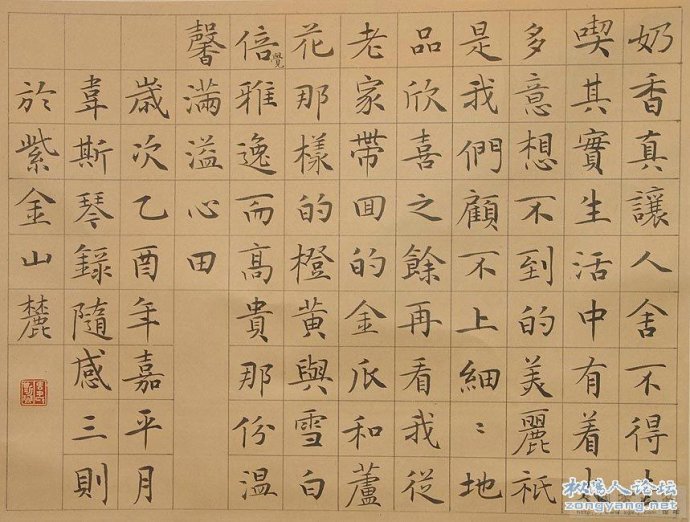 奶香真讓人舍不得
喫其實生活中有着太
多意想不到的美麗祇
是我們顧不上細〻地
品欣喜之餘再看我從
老家帶囬的金瓜和蘆
花那樣的橙黃與雪白
倍覺雅逸而高貴那份溫
馨滿溢心田
歲次乙酉年嘉平月
韋斯琴錄隨感三則
於紫金山麓
枞阳人论坛
zongyang.net